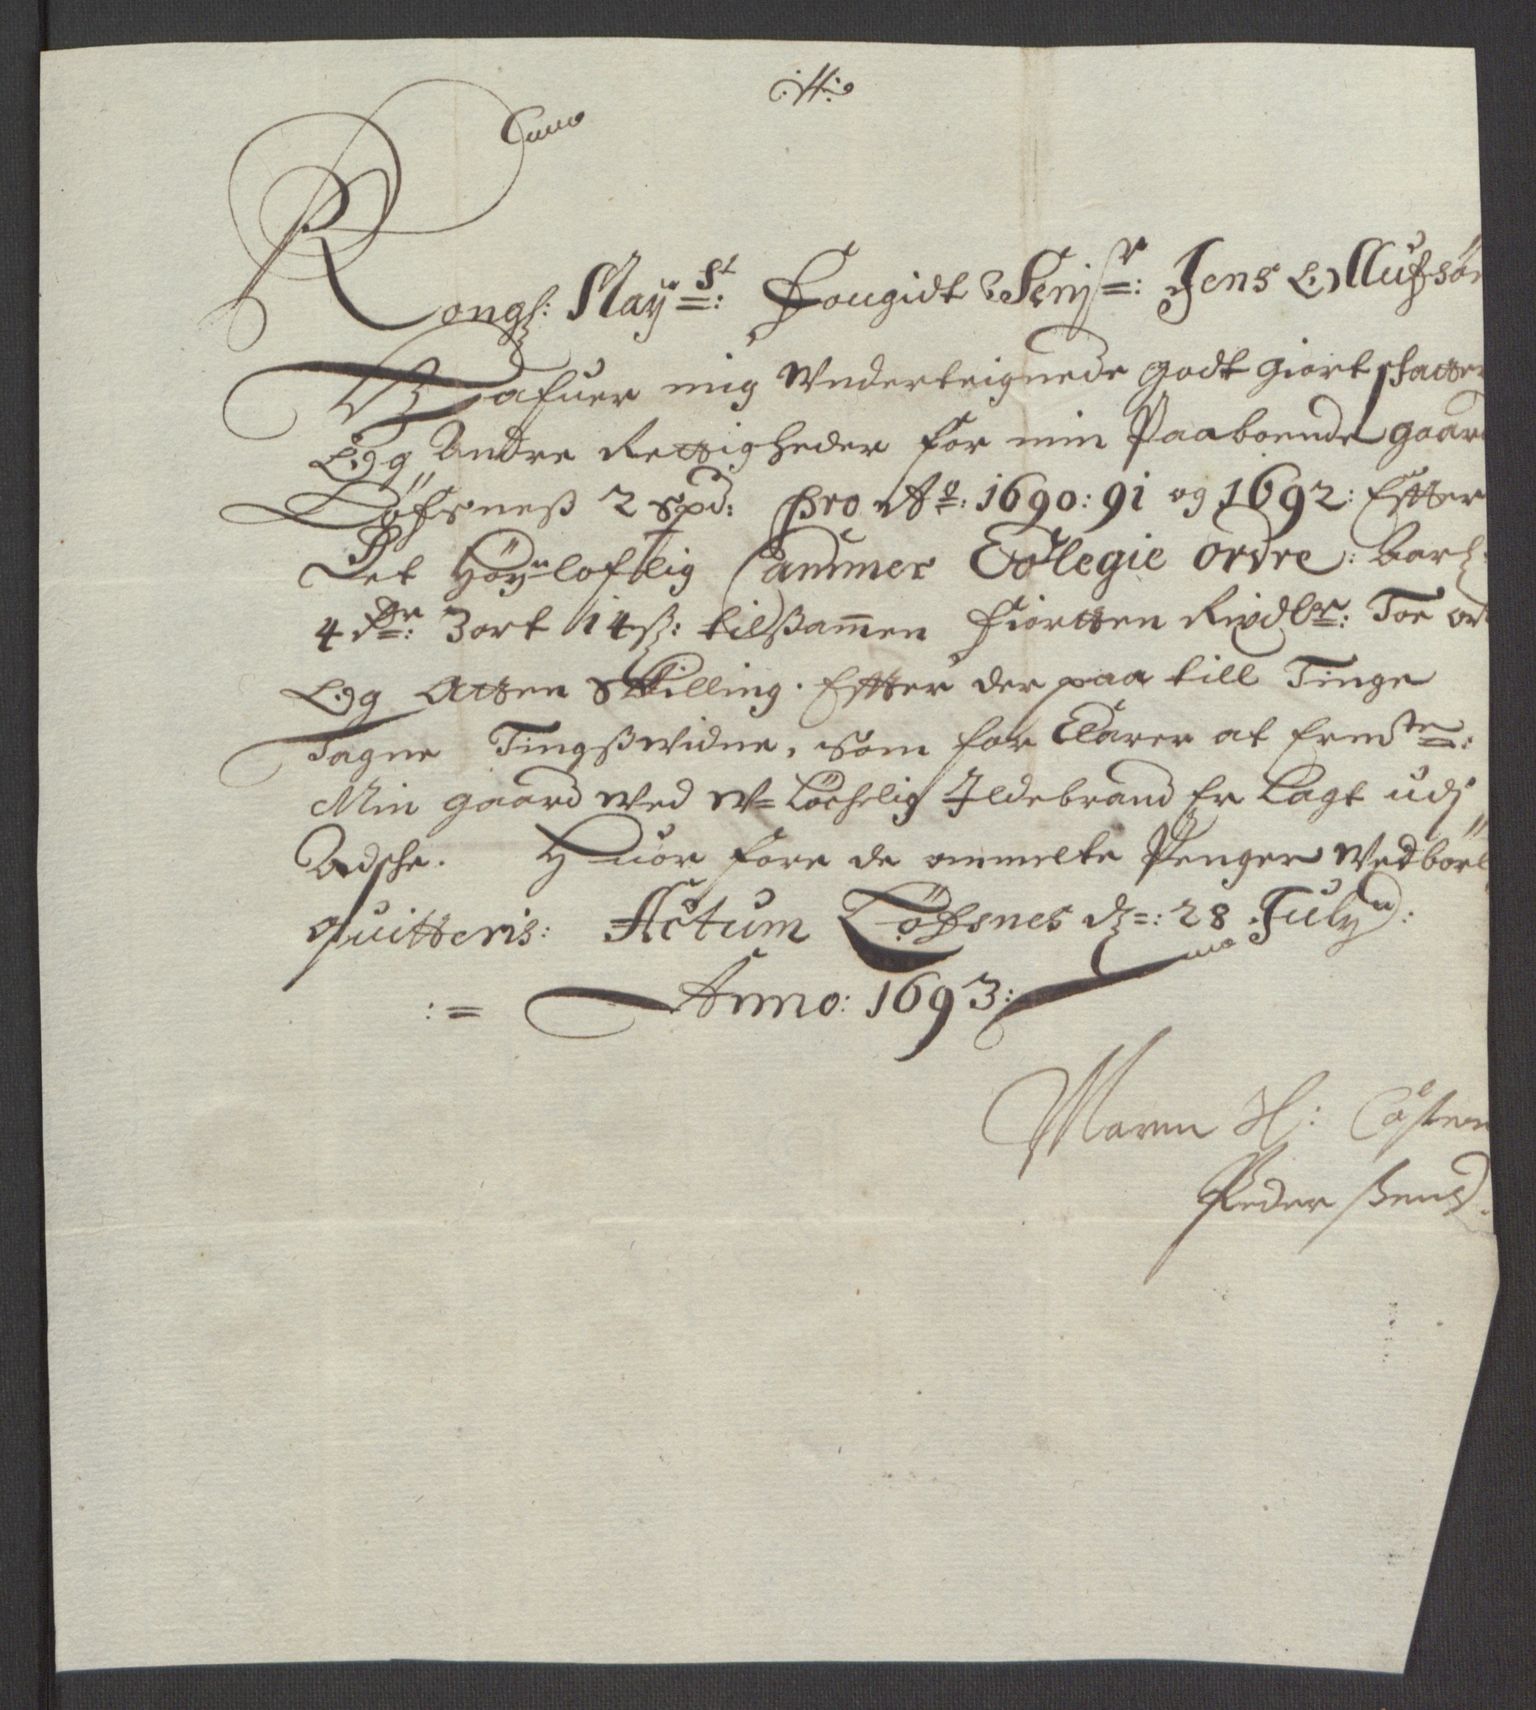 Kongl: May=st: Fougidt Senj=r: Jens Ollufsøn
Hafuer mig Underteignede godt giort skatter
Og Andre Rettigheder for min Paaboende gaard
Løfsness 2 spd: pro Ao: 1690: 91 og 1692: Effter
Det Høy=loflig Cammer Collegie ordre: Aarl:
4 dr: 3 ort 14 ß: tilßammen Fiortten Rixdlr: Toe ort
Og Atten Skilling. Effter der paa till Tinge
Tagne Tingßwidne, som for Clarer at bem=te:
Min gaard wed W=løchelig Ildebrand Er Lagt udj
Adsche. Huor fore de ommelte Penger Wedbørl
quitteris: Actum Løfsnes d=: 28 July:
:= Anno: 1693:
Maren Sl:
Peder